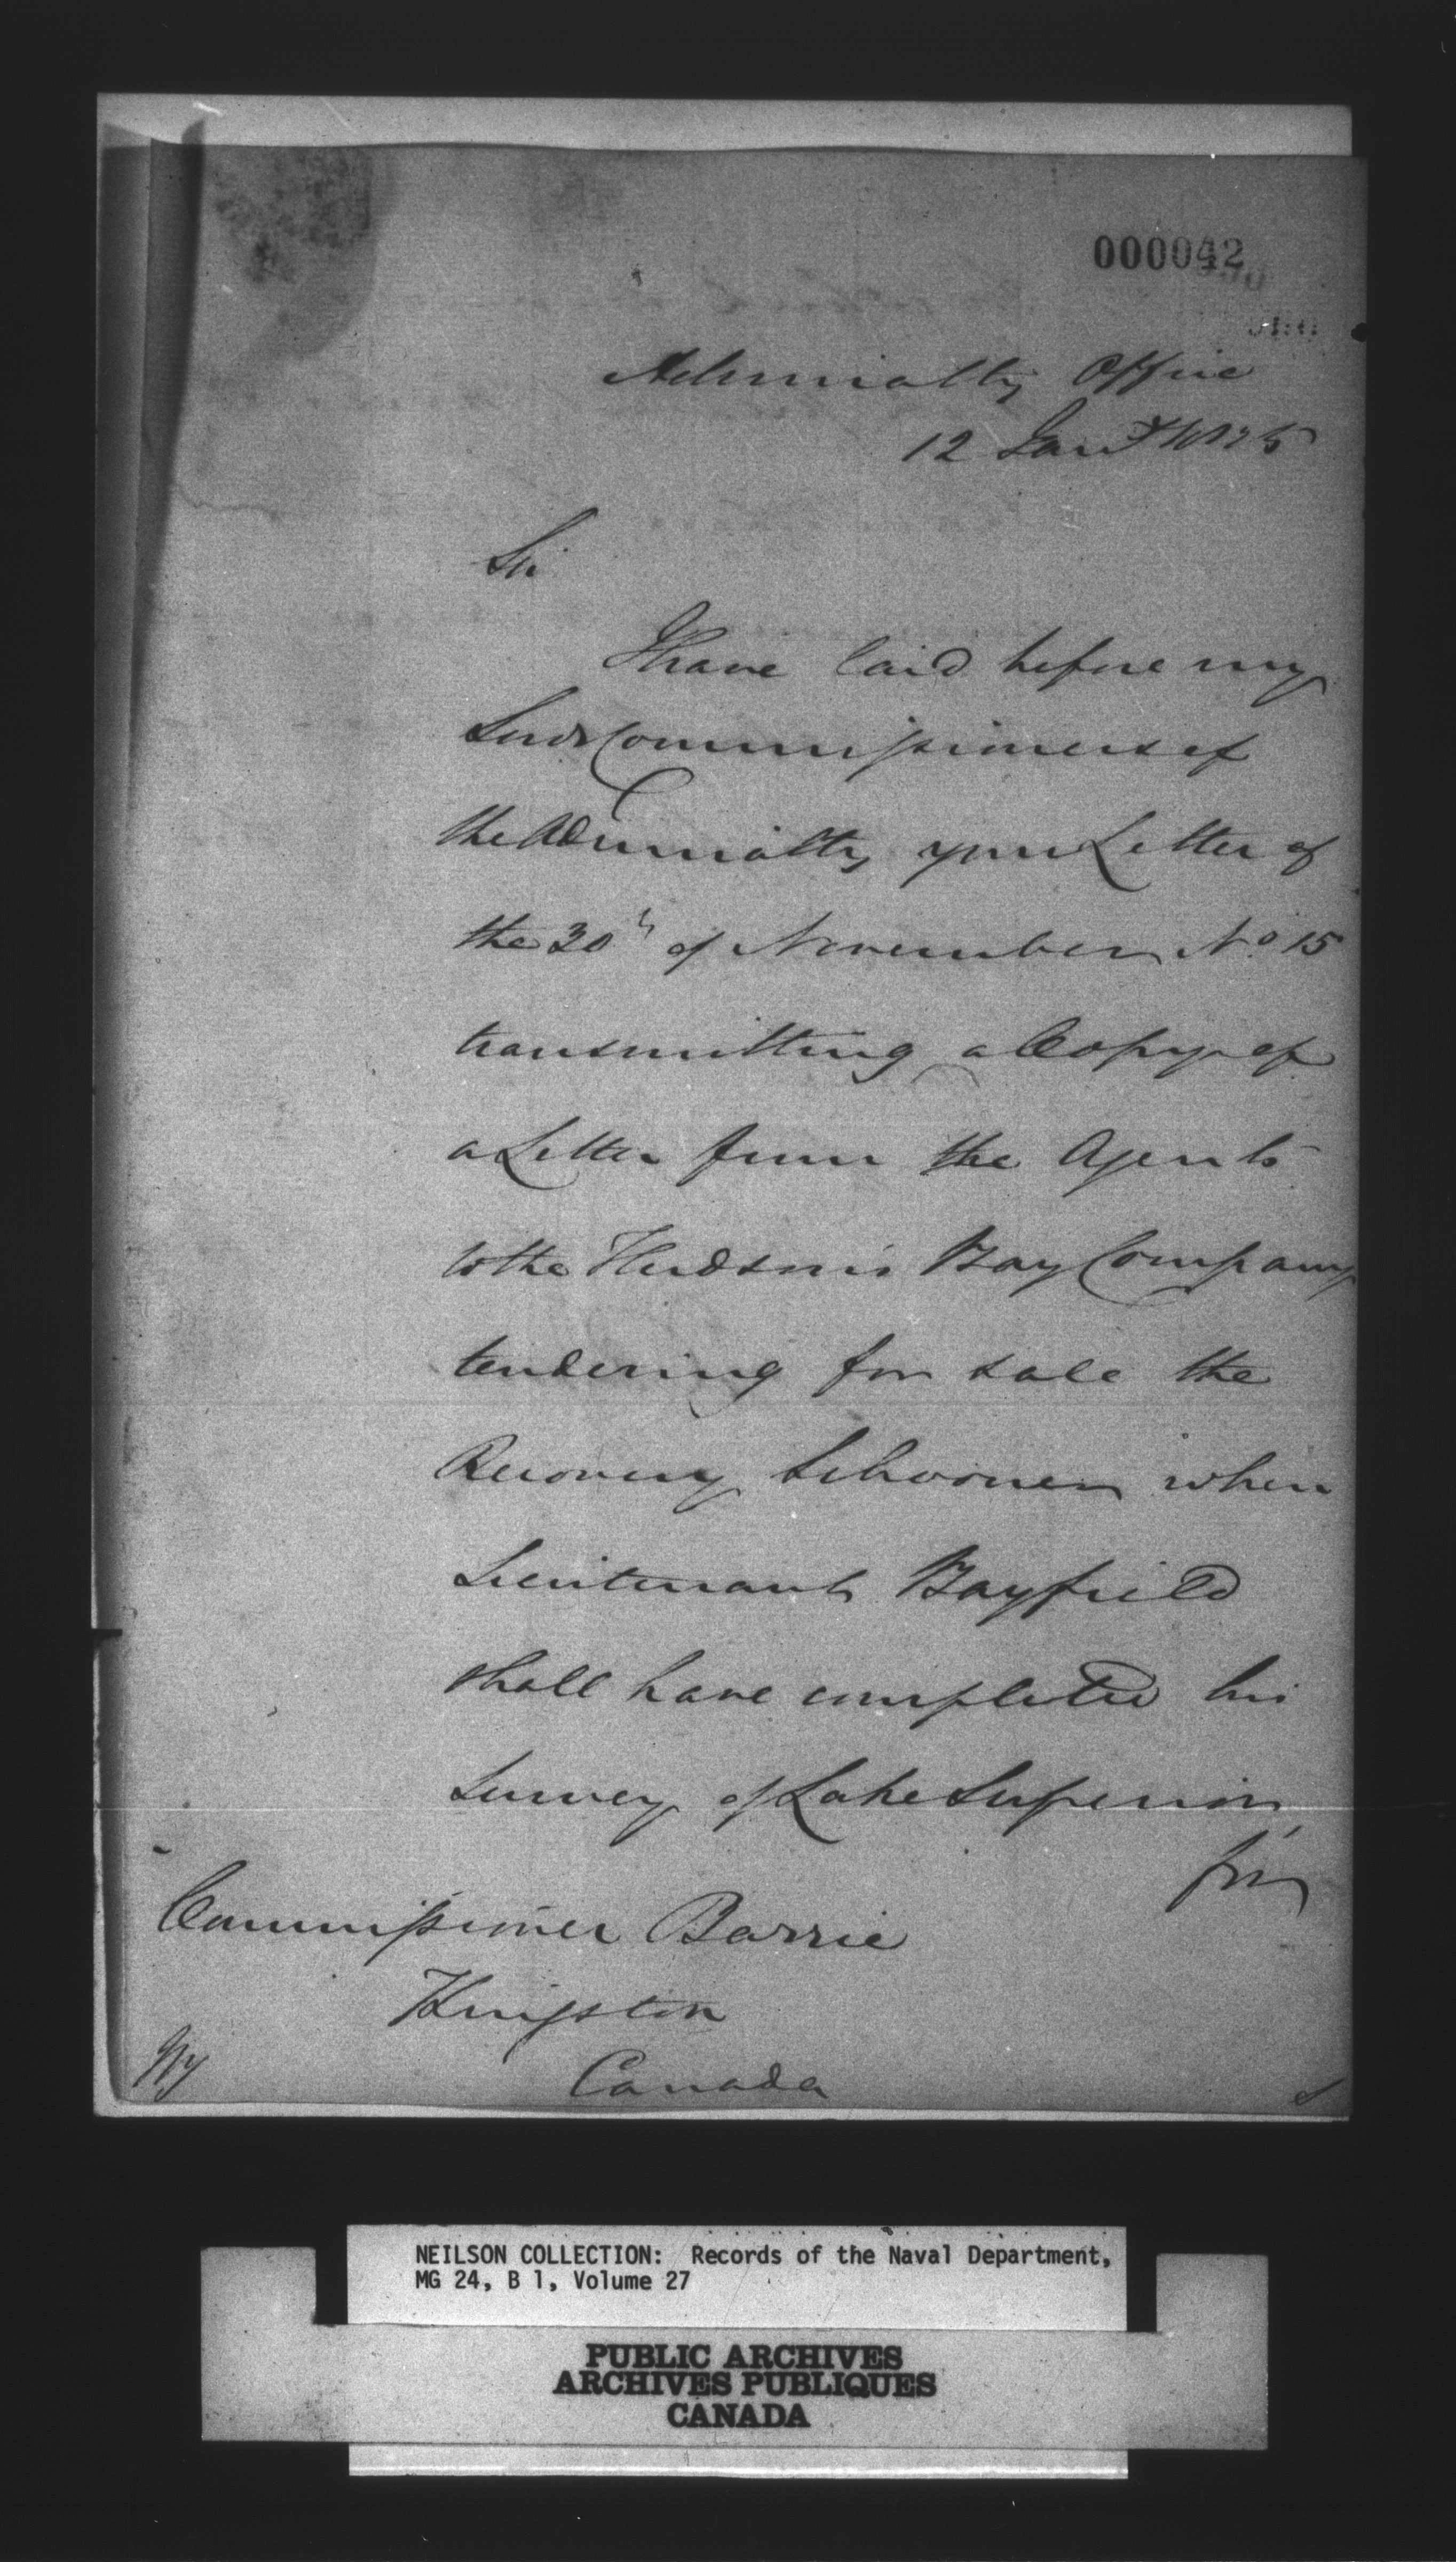 000042
Admiralty Office
12 Jany 1825
Sir
I have laid before my
Lords Commissioners of
the Admiralty your Letter of
the 30th of November No. 15
transmitting a Copy of
a Letter from the Agents
to the Hudson's Bay Company
tendering for sale the
Recovery Schooner when
Lieutenant Bayfield
shall have completed his
Survey of Lake Superior,
for
Commissioner Barrie
Kingston
Canada
NEILSON COLLECTION: Records of the Naval Department,
MG 24, B 1, Volume 27
PUBLIC ARCHIVES
ARCHIVES PUBLIQUES
CANADA